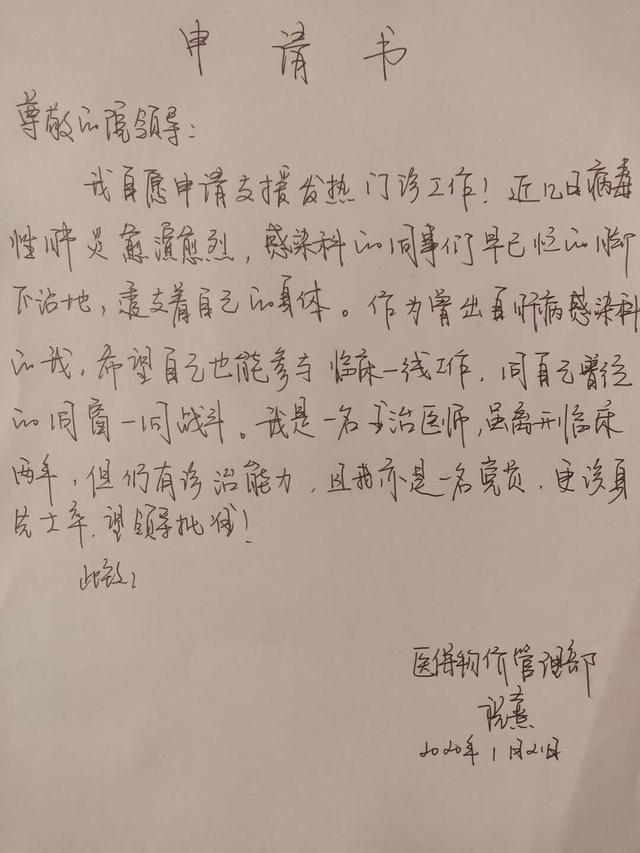 申请书
尊敬的院领导：
我自愿申请支援发热门诊工作！近几日病毒
性肺炎愈演愈烈，感染科的同事们早已忙的脚
不沾地，透支着自己的身体。作为曾出自肺病感染科
的我，希望自己也能参与临床一线工作，同自己曾经
的同窗一同战斗。我是一名主治医师，虽离开临床
两年，但仍有诊治能力，且我亦是一名党员，更该身
先士卒，望领导批准！
此致
医保物价管理部
2020年1月21日